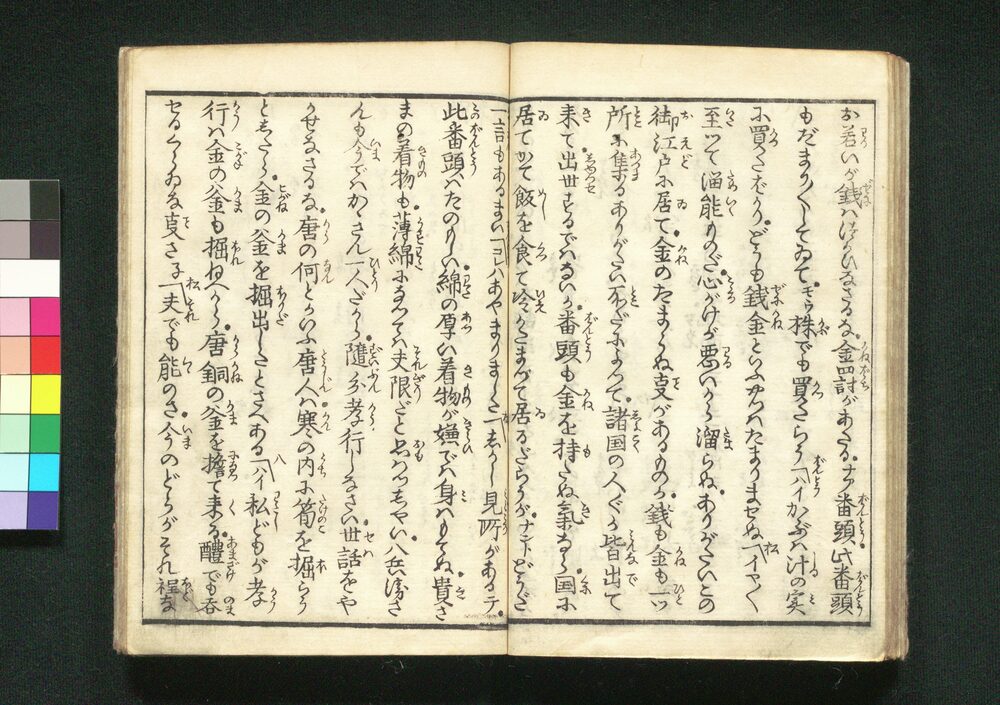 お若いが銭はつかひなさるな。金の罰があたる。ナア番頭。此番頭
もだまか〱してゐて。モウ株でも買たらう「ハイかぶは汁の実
に買たばかり。どうも銭金といふやつはたまりませぬ「イヤ〱
至つて溜能ものだ。心がけが悪いから溜らぬ。ありがたいこの
御江戸に居て。金のたまらぬ事があるものか。銭も金も一ツ
所に集るありがたい所だによつて。諸国の人〲が皆出て
来て出世するではないか。番頭も金を持たぬ気なら。国に
居てかて飯を食て冷かたまつて居るだらうが。ナントどうだ
一言もあるまい「コレハあやまりました「しかし見所があるテ。
此番頭はたのもしい。綿の厚い着物が嫌で。ハ身はもてぬ。貴さ
まの着物も。薄綿になつては夫限だと思つしやい。八兵衛さ
んも今ではかゝさん一人だから。随分孝行しなさい。世話をや
かせなさるな。唐の何とかいふ唐人は。寒の内に筍を掘らう
としたら。金の釜を掘出したとさへある「ハイ私どもが孝
行は金の釜も掘ねへから。唐銅の釜を擔て来る醴でも呑
せるくらゐな事さネ「夫でも能のさ。今のどらがそれ程な